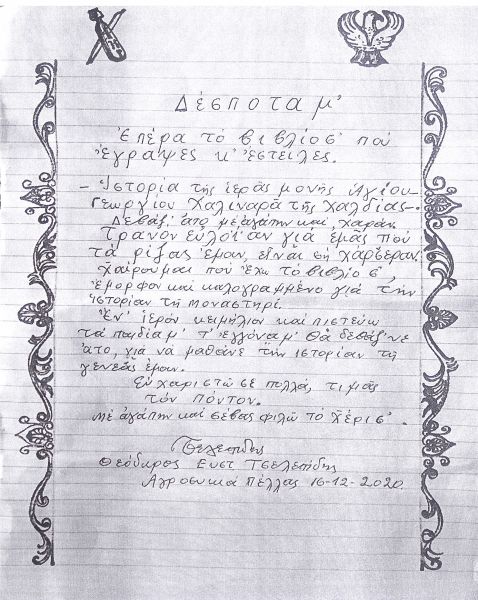 Δέσποτα μ'
Ἐπέρα τό βιβλίο σ' πού
ἔγραψες κ' ἔστειλες.
- Ἱστορία τῆς ἱερᾶς μονῆς Ἁγίου
Γεωργίου Χαλιναρᾶ τῆς Χαλδίας -.
Δεβάζ' ἀτο μέ ἀγάπην καί χαράν.
Τρανόν εὐλοΐαν γιά ἐμᾶς πού
τά ρίζας ἐμουν εἶναι σή Χαρσέραν.
Χαίρουμαι πού ἔχω τό βιβλίο σ',
ἔμορφον καί καλογραμμένο γιά τήν
ἱστορίαν τῆ μοναστηρί.
Ἐν' ἱερόν κειμήλιον καί πιστεύω
τά παιδία μ' τ' ἐγγόνα μ' θά δεβάζ'νε
ἀτο, γιά νά μαθάνε τήν ἱστορίαν τῆ
γενεᾶς ἐμουν.
Εὐχαριστῶ σε πολλά, τιμᾶς
τόν Πόντον.
Μέ ἀγάπην καί σέβας φιλῶ τό χέρι σ'.
Θεόδωρος Ευστ Τσελεπίδης
Αγροσυκιά Πέλλας 16-12-2020.